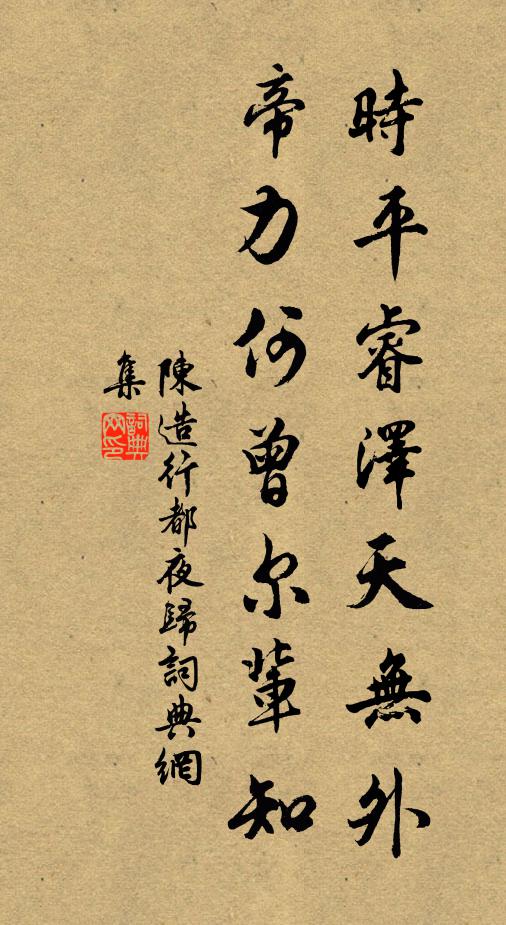 時平睿澤天無外
帝力何曾尔輩知
陳造行都夜歸詞典網
集
詞典網印